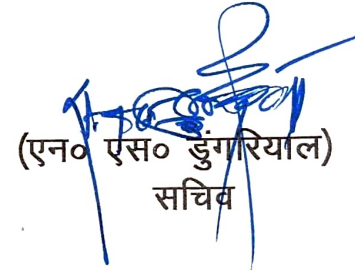 (एन० एस० डुंगरियाल)
सचिव